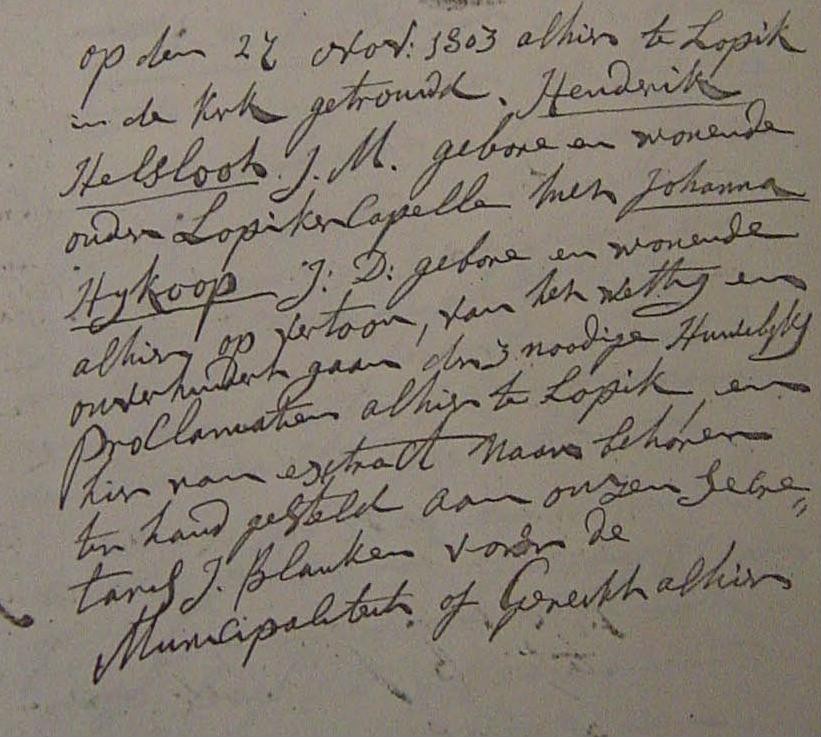 op den 27 Nov: 1803 alhier te Lopik
in de Kerk getrouwd. Hendrik
Helsloot. J. M. gebore en wonende
onder Lopiker Capelle met Johanna
Hykoop J: D: gebore en wonende
alhier op vertoon, van het wettig en
onverhindert gaan der 3 noodige Huwelyks
Proclamatien alhier te Lopik, en
hier van extract naar behoren
ter hand gesteld aan onzen Secre„
taris J. Blanken voor de
Municipaliteit of Gerecht alhier